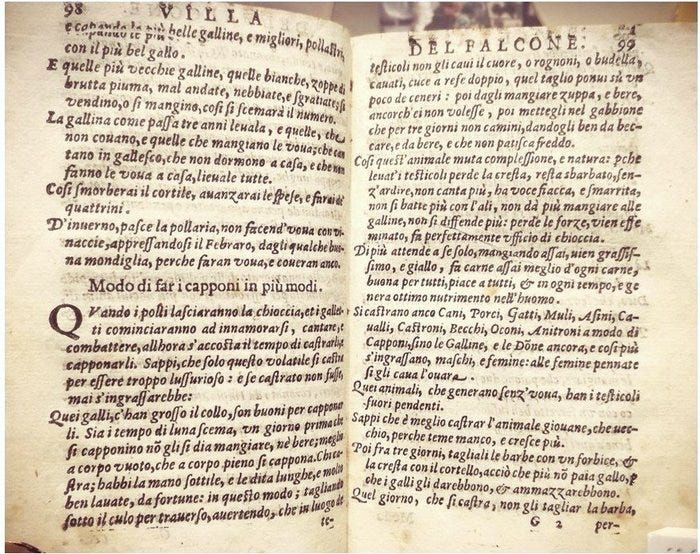 98 VILLA
e capando le più belle galline, e migliori, pollastri,
con il più bel gallo.
E quelle più vecchie galline, quelle bianche, zoppe di
brutta piuma, mal andate, nebbiate, e sgratiate; si
vendino, o si mangino, cosi si scemarà il numero.
La gallina come passa tre anni leuala, e quelle, che
non couano, e quelle che mangiano le voua; che can
tano in gallesco, che non dormono a casa, e che non
fanno le voua a casa, lieuale tutte.
Cosi smorberai il cortile, auanzarai le spese, e farai de'
quattrini.
D'inuerno, pasce la pollaria, non facend'voua con vi-
naccie, appressandosi il Febraro, dagli qualche buo-
na mondiglia, perche faran voua, e coueran anco.
Modo di far i capponi in più modi.
QVando i posti lasciaranno la chioccia, et i galle-
ti cominciaranno ad innamorarsi, cantare, e
combattere, allhora s'accosta il tempo di castrarli, e
capponarli. Sappi, che solo questo volatile si castra
per essere troppo lussurioso: e se castrato non fusse,
mai s'ingrassarebbe:
Quei galli, c'han grosso il collo, son buoni per cappona
li. Sia i tempo di luna scema, vn giorno prima che
si capponino nō gli si dia mangiare, nè bere; meglio
a corpo vuoto, che a corpo pieno si cappona. Chi ca-
stra; habbi la mano sottile, e le dita lunghe, e molto
ben lauate, da fortune: in questo modo; tagliando
sotto il culo per trauerso, auertendo, che in luogo de
te-
DEL FALCONE. 99
testicoli non gli caui il cuore, o rognoni, o budella,
cauati, cuce a refe doppio, quel taglio ponui sù vn
poco de ceneri: poi dagli mangiare zuppa, e bere,
ancorch'ei non volesse, poi mettegli nel gabbione
che per tre giorni non camini, dandogli ben da bec-
care, e da bere, e che non patisca freddo.
Cosi quest'animale muta complessione, e natura: pche
leuat'i testicoli perde la cresta, resta sbarbato, sen-
z'ardire, non canta più, ha voce fiacca, e smarrita,
non si batte più con l'ali, non dà più mangiare alle
galline, non si diffende più: perde le forze, vien effe
minato, fa perfettamente vfficio di chioccia.
Di più attende a se solo, mangiando assai, uien grassis-
simo, e giallo, fa carne assai meglio d'ogni carne,
buona per tutti, piace a tutti, & in ogni tempo, e ge
nera ottimo nutrimento nell'huomo.
Si castrano anco Cani, Porci, Gatti, Muli, Asini, Ca-
ualli, Castroni, Becchi, Oconi, Anitroni a modo di
Capponi, sino le Galline, e le Dōne ancora, e cosi più
s'ingrassano, maschi, e femine: alle femine pennate
si gli caua l'ouara.
Quei animali, che generano senz'voua, han i testicoli
fuori pendenti.
Sappi che è meglio castrar l'animale giouane, che uec-
chio, perche teme manco, e cresce più.
Poi fra tre giorni, tagliali le barbe con vn forbice, &
la cresta con il cortello, acciò che più nō paia gallo, e
che i galli gli darebbono, & ammazzarebbono.
Quel giorno, che si castra, non gli tagliar la barba,
G 2 per-